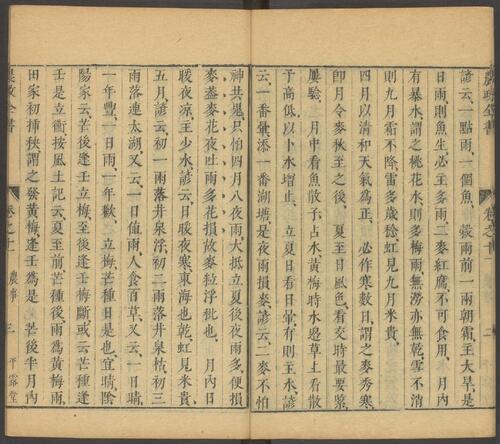 農政全書　卷之十一　二
諺云一點雨一個魚穀雨前一兩朝霜主大旱是
日雨則魚生必主多雨二麥紅腐不可食用　月內
有暴水謂之桃花水則多梅雨無澇亦無乾雪不消
則九月霜不降雷多歲稔虹見九月米貴
四月以清和天氣為正　必作寒數日謂之麥秀寒
卽月令麥秋至之後　夏至日風色看交時最要緊
屢驗　月中看魚散子占水黃梅時水邊草上看散
子高低以卜水增止　立夏日看日暈有則主水諺
云一番暈添一番湖塘是夜雨損麥諺云二麥不怕
神共鬼只怕四月八夜雨大抵立夏後夜雨多便損
麥蓋麥花夜吐雨多花損故麥粒浮秕也　月內日
暖夜凉主少水諺云日暖夜寒東海也乾虹見米貴
五月諺云初一雨落井泉浮初二雨落井泉枯初三
雨落連太湖又云一日值雨人食百草又云一日晴
一年豐一日雨一年歉　立梅芒種日是也宜晴陰
陽家云芒後逢壬立梅至後逢壬梅斷或云芒種逢
壬是立梅按風土記云夏至前芒種後雨為黃梅雨
田家初插秧謂之發黃梅逢壬為是　芒後半月內
農政全書　卷之十一　農事　三　平露堂